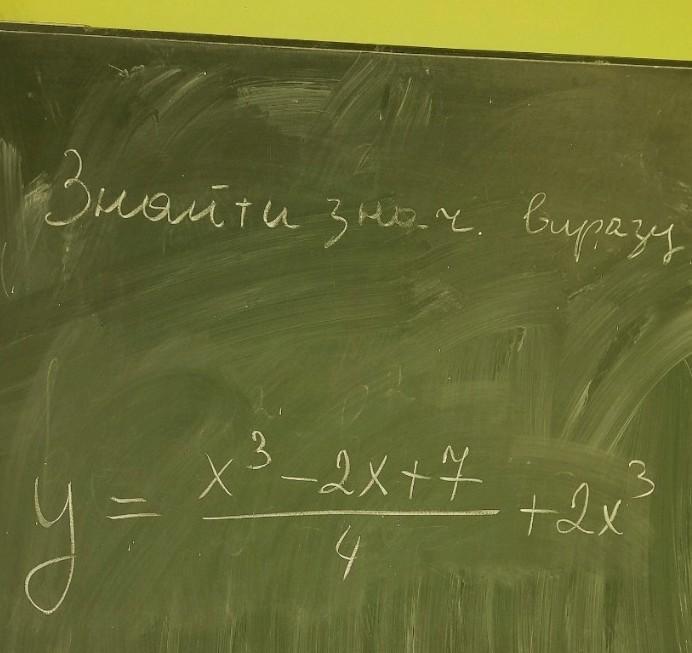 Знайти знач. виразу
y = \frac{x^3 - 2x + 7}{4} + 2x^3